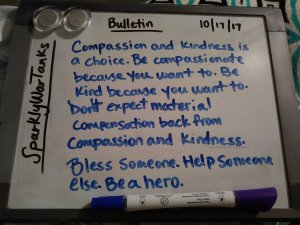 Bulletin 10/17/17
SparklyWarTanks
Compassion and kindness is
a choice. Be compassionate
because you want to. Be
kind because you want to.
Don't expect material
compensation back from
compassion and kindness.
Bless someone. Help someone
else. Be a hero.